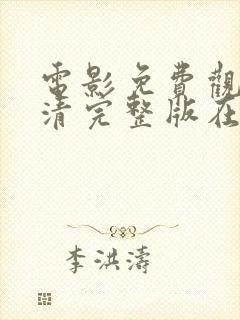 電影免費觀
清完整版在
李洪濤